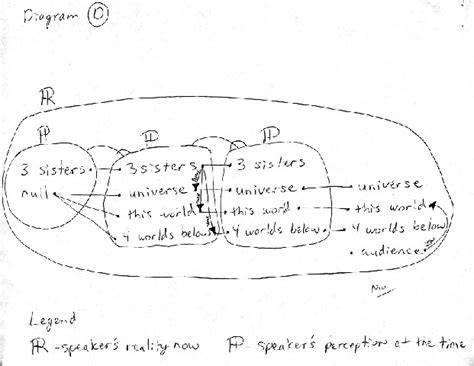 Diagram D
R
P P P
3 sisters 3 sisters 3 sisters
null universe universe universe
this world this world this world
4 worlds below 4 worlds below 4 worlds below
audience
Now
Legend
R - speaker's reality now P - speaker's perception at the time